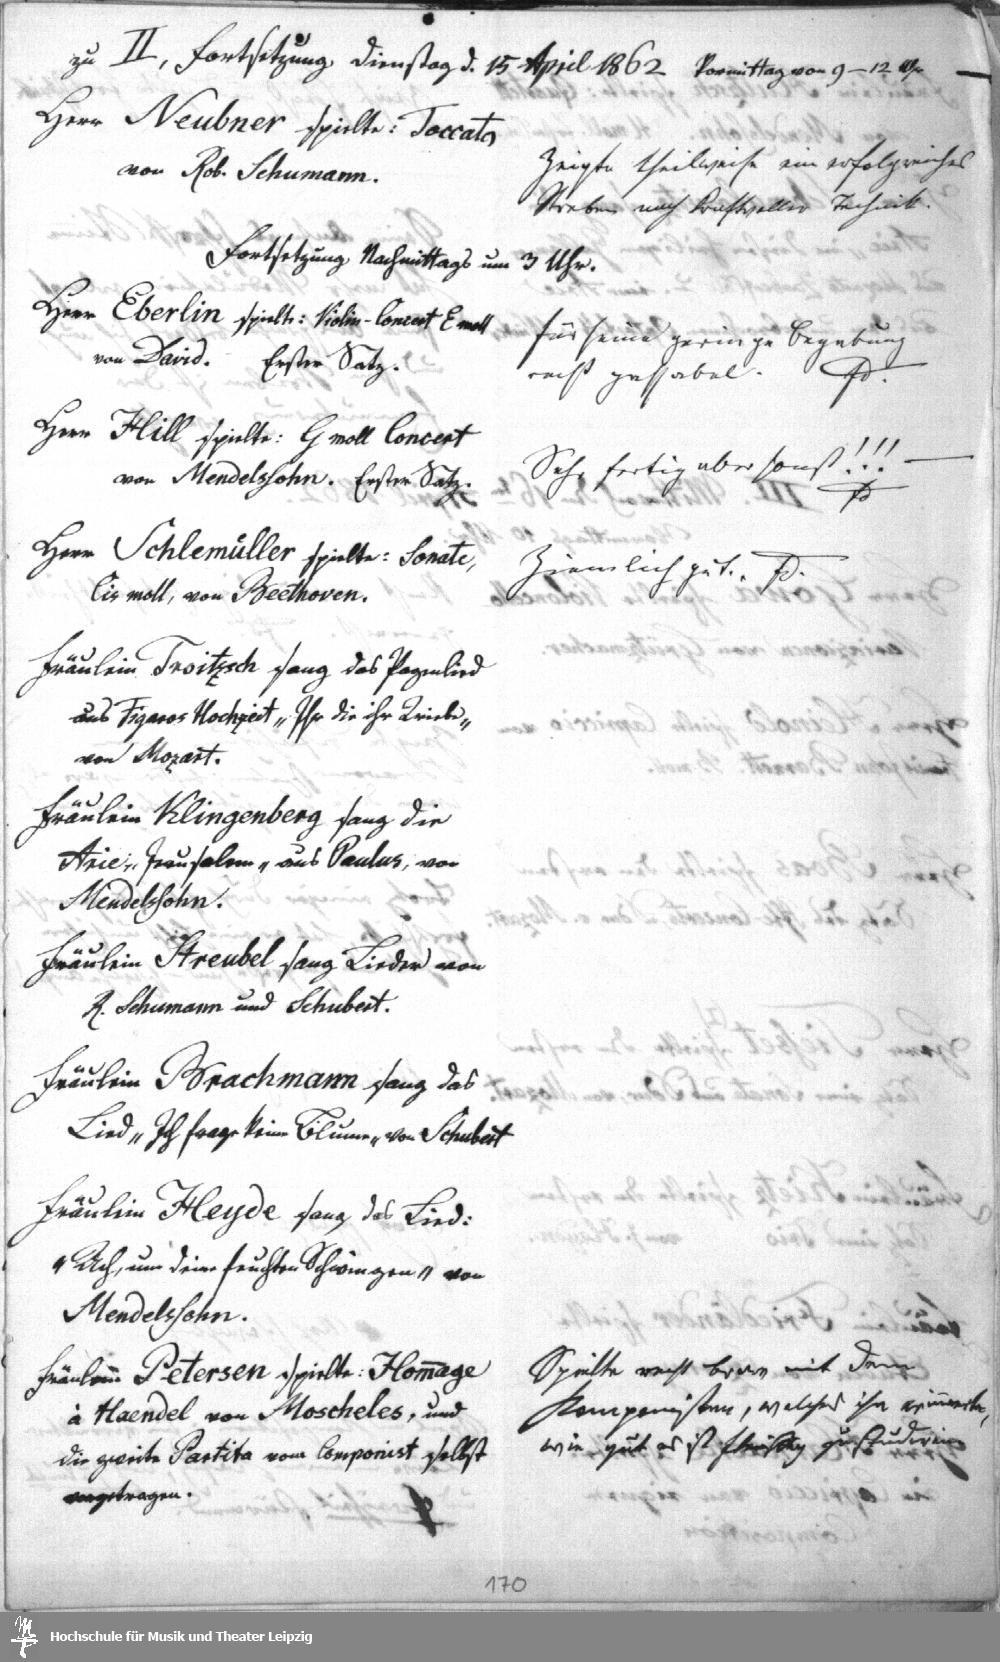 zu II, Fortsetzung Dienstag d. 15 April 1862 Vormittag von 9–12 Uhr
Herr Neubner spielte: Toccata
von Rob. Schumann.
Zeigte theilweise ein erfolgreiches
Streben nach kraftvoller Technik.
Fortsetzung Nachmittags um 3 Uhr.
Herr Eberlin spielte: Violin-Concert E moll
von David. Erster Satz.
für seine geringe Begabung
recht passabel.
Herr Hill spielte: G moll Concert
von Mendelssohn. Erster Satz.
Sehr fertig aber sonst!!! —
Herr Schlemüller spielte: Sonate,
Cis moll, von Beethoven.
Ziemlich gut.
Fräulein Troitzsch sang das Pagenlied
aus Figaros Hochzeit „Ihr die ihr Triebe„
von Mozart.
Fräulein Klingenberg sang die
Arie: „Jerusalem„ aus Paulus, von
Mendelssohn.
Fräulein Streubel sang Lieder von
R. Schumann und Schubert.
Fräulein Brachmann sang das
Lied „Ich frage keine Blume„ von Schubert
Fräulein Heyde sang das Lied:
„Ach, um deine feuchten Schwingen„ von
Mendelssohn.
Fräulein Petersen spielte: Hommage
à Haendel von Moscheles, und
die zweite Partita vom Componist selbst
vorgetragen.
Spielte recht brav mit dem
Komponisten, welcher ihr erinnerte,
wie gut es ist fleißig zu studieren
170
Hochschule für Musik und Theater Leipzig